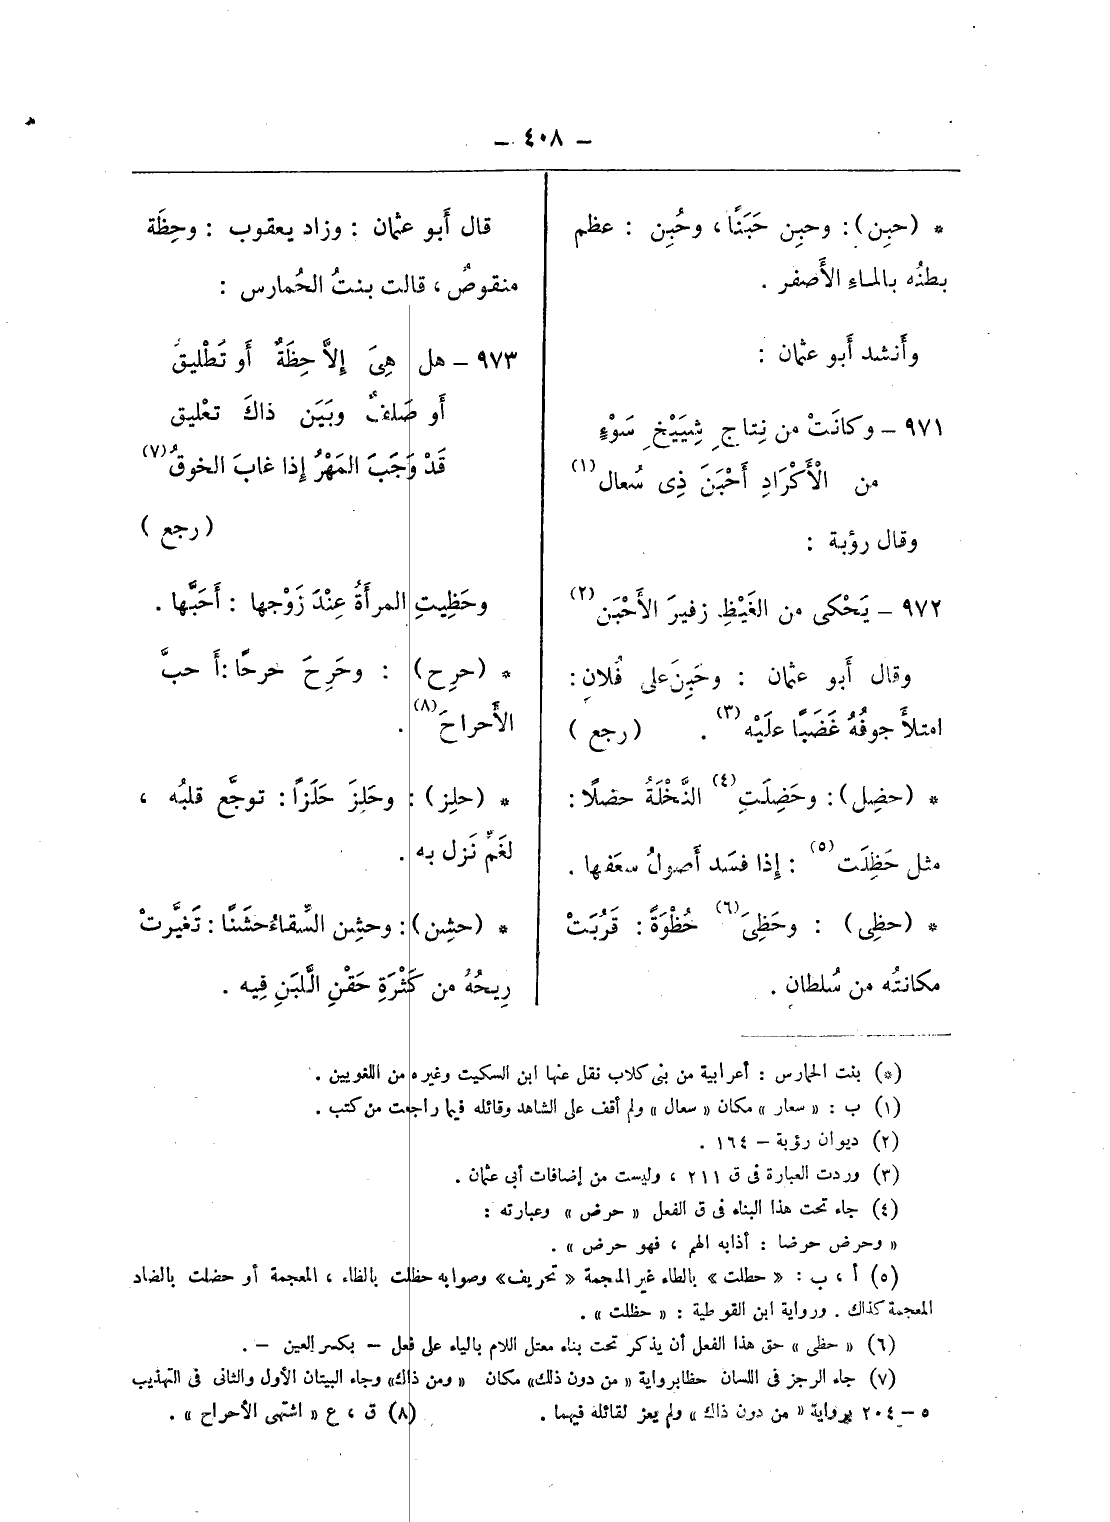 – ٤٠٨ –
* (حبِن): وحبِن حَبَنًا، وحُبِن : عظم
بطنُه بالماءِ الأَصفر .
وأَنشد أَبو عثمان :
٩٧١ – وكانَتْ من نِتاجِ شِيَيْخِ سَوْءٍ
من الْأَكْرَادِ أَحْبَنَ ذِى سُعال (١)
وقال رؤبة :
٩٧٢ – يَحْكى من الغَيْظِ زفيرَ الأَحْبَن (٢)
وقال أَبو عثمان : وحَبِنَ على فُلانٍ :
امتلأَ جوفُهُ غَضَبًا علَيْه (٣) . (رجع)
* (حضِل): وحَضِلَتِ (٤) النَّخْلَةُ حضلًا :
مثل حَظِلَت (٥) : إِذا فسَد أَصولُ سعَفها .
* (حظِى) : وحَظِىَ (٦) حُظْوَةً : قَرُبَتْ
مكانتُه من سُلطانٍ .
قال أَبو عثمان : وزاد يعقوب : وحِظَة
منقوصٌ ، قالت بنتُ الحُمارس :
٩٧٣ – هل هِىَ إِلاَّ حِظَةٌ أَو تَطْليقُ
أَو صَلفٌ وبَيَن ذاكَ تعْليق
قَدْ وَجَبَ المَهْرُ إِذا غابَ الحُوقُ (٧)
(رجع)
وحَظِيتِ المرأَةُ عِنْدَ زَوْجها : أَحَبَّها .
* (حرِح) : وحَرِحَ حرحًا : أَحبَّ
الأَحراحَ (٨) .
* (حلِز) : وحَلِزَ حَلَزاً : توجَّع قلبُه ،
لغَمٍّ نَزل به .
* (حشِن) : وحشِن السِّقاءُ حشَنًا : تَغيَّرتْ
رِيحُهُ من كَثْرَةِ حَقْنِ اللَّبَنِ فِيه .
(*) بنت الحمارس : أعرابية من بنى كلاب نقل عنها ابن السكيت وغيره من اللغويين .
(١) ب : « سعار » مكان « سعال » ولم أقف على الشاهد وقائله فيما راجعت من كتب .
(٢) ديوان رؤبة – ١٦٤ .
(٣) وردت العبارة فى ق ٢١١ ، وليست من إضافات أبى عثمان .
(٤) جاء تحت هذا البناء فى ق الفعل « حرض » وعبارته :
« وحرض حرضا : أذابه الهم ، فهو حرض » .
(٥) أ ، ب : « حطلت » بالطاء غير المجمة « تحريف» وصوابه حظلت بالظاء ، المعجمة أو حضلت بالضاد
المعجمة كذاك . ورواية ابن القوطية : « حظلت » .
(٦) « حظى » حق هذا الفعل أن يذكر تحت بناء معتل اللام بالياء على فعل – بكسر العين – .
(٧) جاء الرجز فى اللسان حظا برواية « من دون ذلك» مكان «ومن ذاك» وجاء البيتان الأول والثانى فى التهذيب
٥ – ٢٠٤ برواية « من دون ذاك » ولم يعز لقائله فيهما . (٨) ق ، ع « اشتهى الأحراح » .